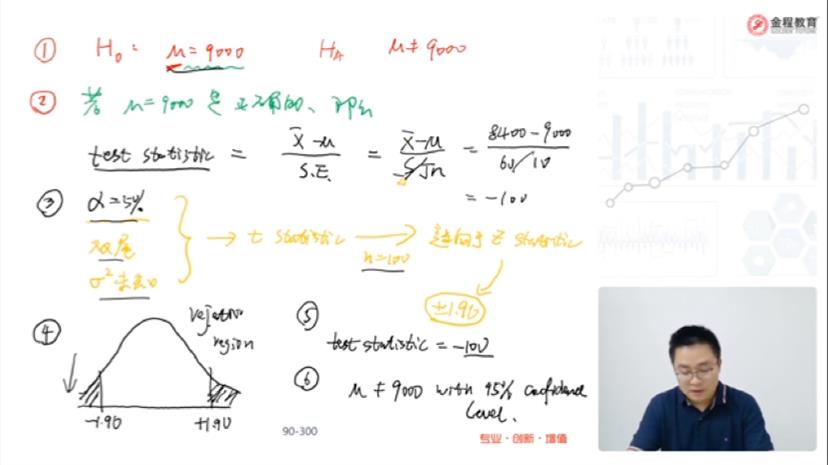 金程教育
GOLDEN FUTURE
① H₀: μ=9000 H_A μ≠9000
② 若 μ=9000 是正确的、那么
test statistic = X̄-μ / S.E. = X̄-μ / S/√n = 8400-9000 / 60/10
= -100
③ α=5%
双尾
σ²未知
→ t statistic → n=100 趋向于 z statistic
±1.96
④ rejection
region
-1.96 +1.96
⑤
test statistic = -100
⑥ μ ≠ 9000 with 95% confidence
level.
90-300
专业·创新·增值